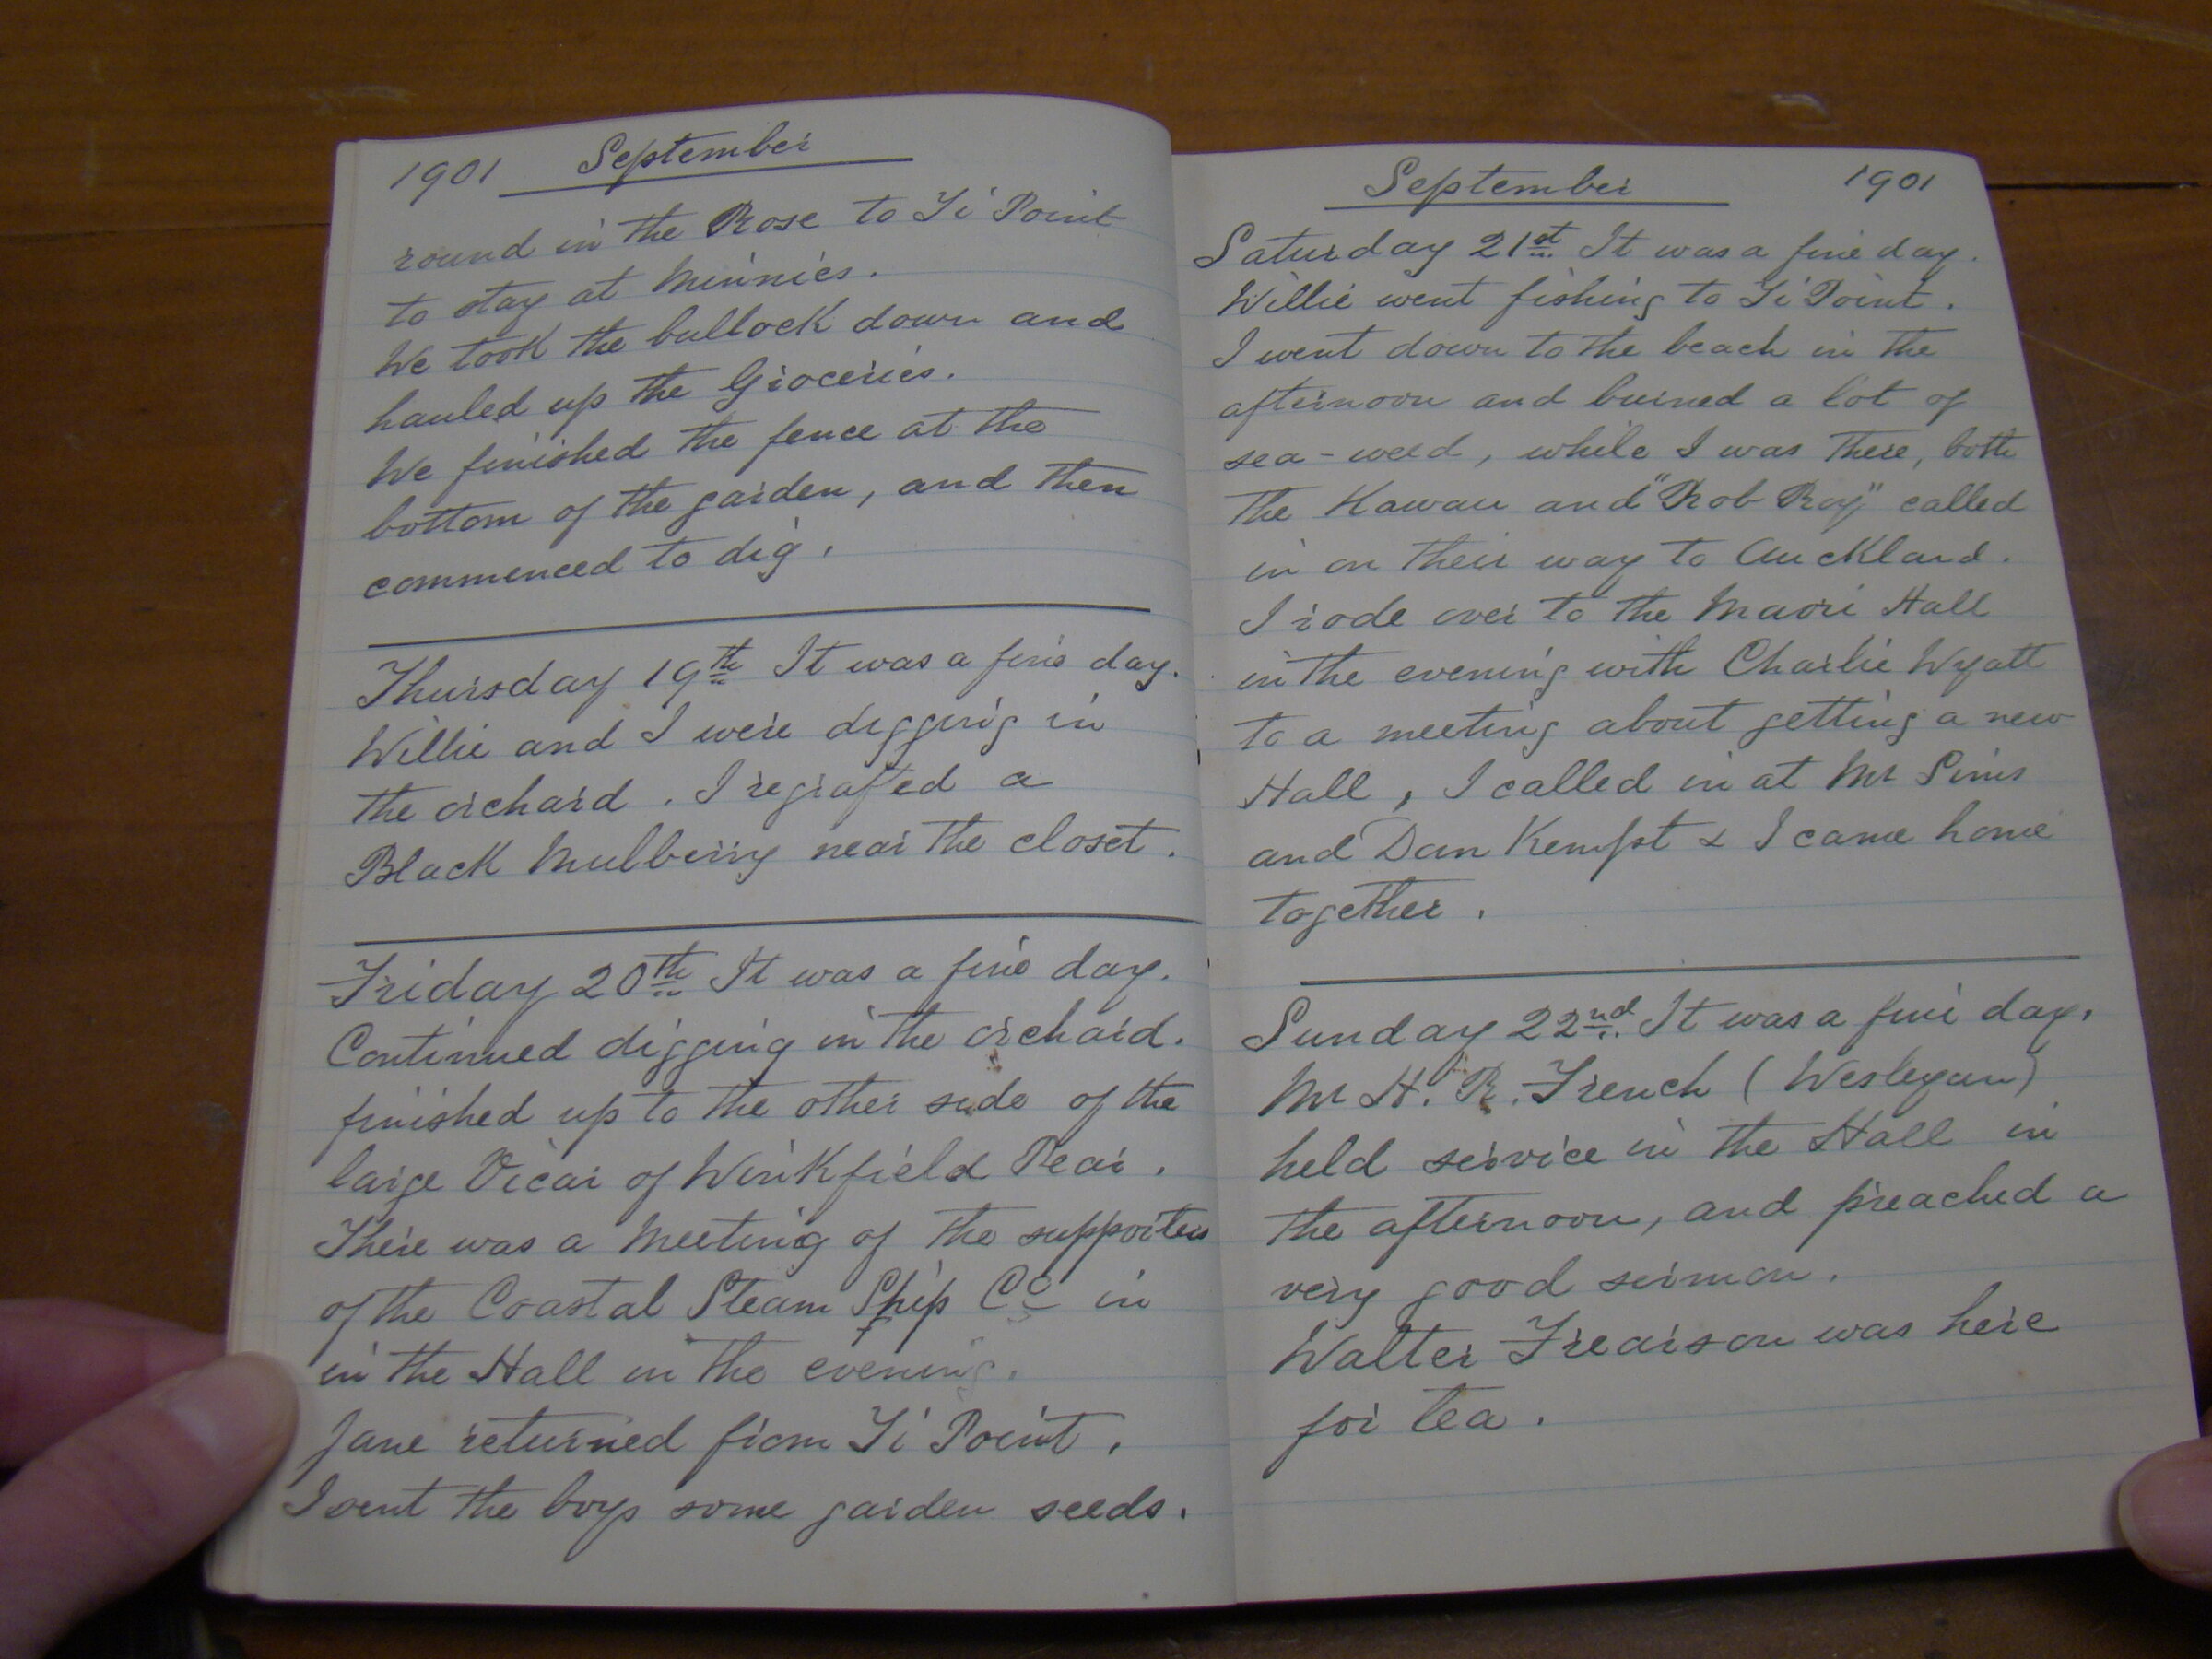 1901 September
round in the Rose to Ti Point
to stay at Minnies.
We took the bullock down and
hauled up the Groceries.
We finished the fence at the
bottom of the garden, and then
commenced to dig.
Thursday 19th It was a fine day.
Willie and I were digging in
the orchard. I regrafted a
Black Mulberry near the closet.
Friday 20th It was a fine day.
Continued digging in the orchard.
finished up to the other side of the
large Vicar of Winkfield Pear.
There was a Meeting of the supporters
of the Coastal Steam Ship Co in
in the Hall in the evening.
Jane returned from Ti Point.
I sent the boys some garden seeds.
September 1901
Saturday 21st. It was a fine day.
Willie went fishing to Ti Point.
I went down to the beach in the
afternoon and burned a lot of
sea-weed, while I was there, both
the Kawau and "Rob Roy" called
in on their way to Auckland.
I rode over to the Maori Hall
in the evening with Charlie Wyatt
to a meeting about getting a new
Hall, I called in at Mr Sims
and Dan Kempt & I came home
together.
Sunday 22nd. It was a fine day.
Mr H. R. French (Wesleyan)
held service in the Hall in
the afternoon, and preached a
very good sermon.
Walter Frearson was here
for tea.